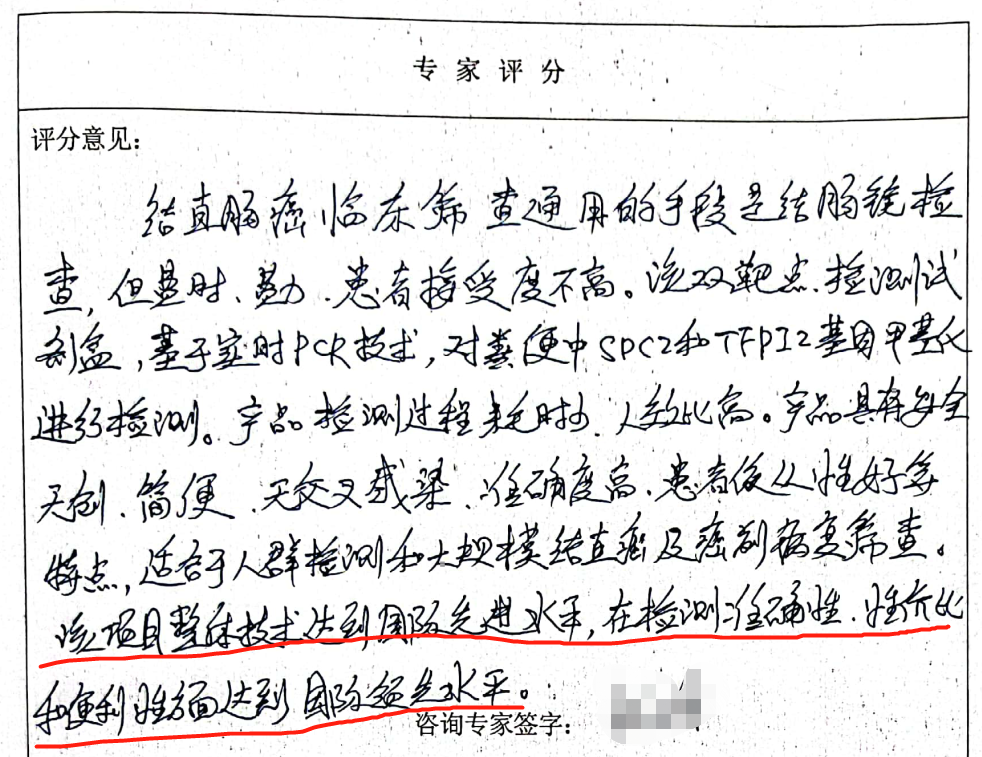 专家评分
评分意见：
结直肠癌临床筛查通用的手段是结肠镜检
查，但费时、费力、患者接受度不高。该双靶点检测试
剂盒，基于实时PCR技术，对粪便中SDC2和TFPI2基因甲基化
进行检测。产品检测过程耗时少、人效比高。产品具有安全
无创、简便、无交叉感染、准确度高、患者依从性好等
特点，适合于人群检测和大规模结直癌及癌前病变筛查。
该项目整体技术达到国际先进水平，在检测准确性、性价比
和便利性方面达到国际领先水平。
咨询专家签字：